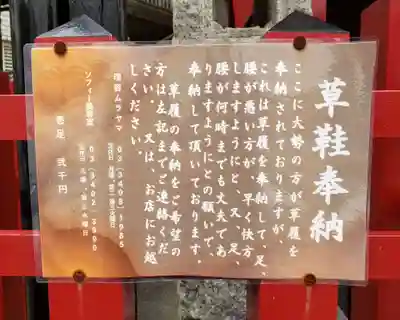 草鞋奉納
ここに大勢の方が草履を
奉納されておりますが、
これは草履を奉納して、足、
腰が悪い方が、早く快方
しますようにと、又、足、
腰が何時までも丈夫であ
りますようにとの願いで、
奉納して頂いております。
草履の奉納をご希望の
方は左記までご連絡くだ
さい。又は、お店にお越
しください。
理容ムラヤマ 03(3408)1985
定休日
ソフィー美容室 03(3402)3990
定休日
壱足 弐千円